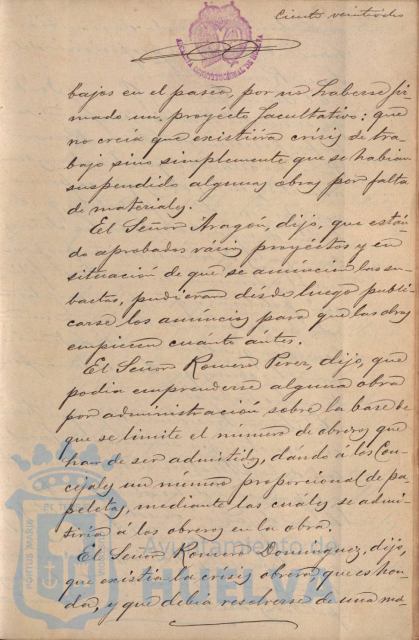 Ciento veintidos
bajos en el paseo, por no haberse for
mado un proyecto facultativo: que
no creia que existiera crisis de tra-
bajo sino simplemente que se habian
suspendido algunas obras por falta
de materiales.
El Señor Aragón, dijo, que están
do aprobados varios proyectos y en
situación de que se anuncien las su-
bastas, pudieran desde luego publi
carse los anuncios para que las obras
empiecen cuanto ántes.
El Señor Romero Perez, dijo, que
podia emprenderse alguna obra
por administración, sobre la base de
que se limite el número de obreros que
han de ser admitidos, dando á los Con-
cejales un número proporcional de pa-
peletas, mediante las cuales se admi-
tiria á los obreros en la obra.
El Señor Romero Dominguez, dijo,
que existia la crisis obrera, que es hon
da, y que debia resolverse de una ma-
Ayuntamiento de
HUELVA